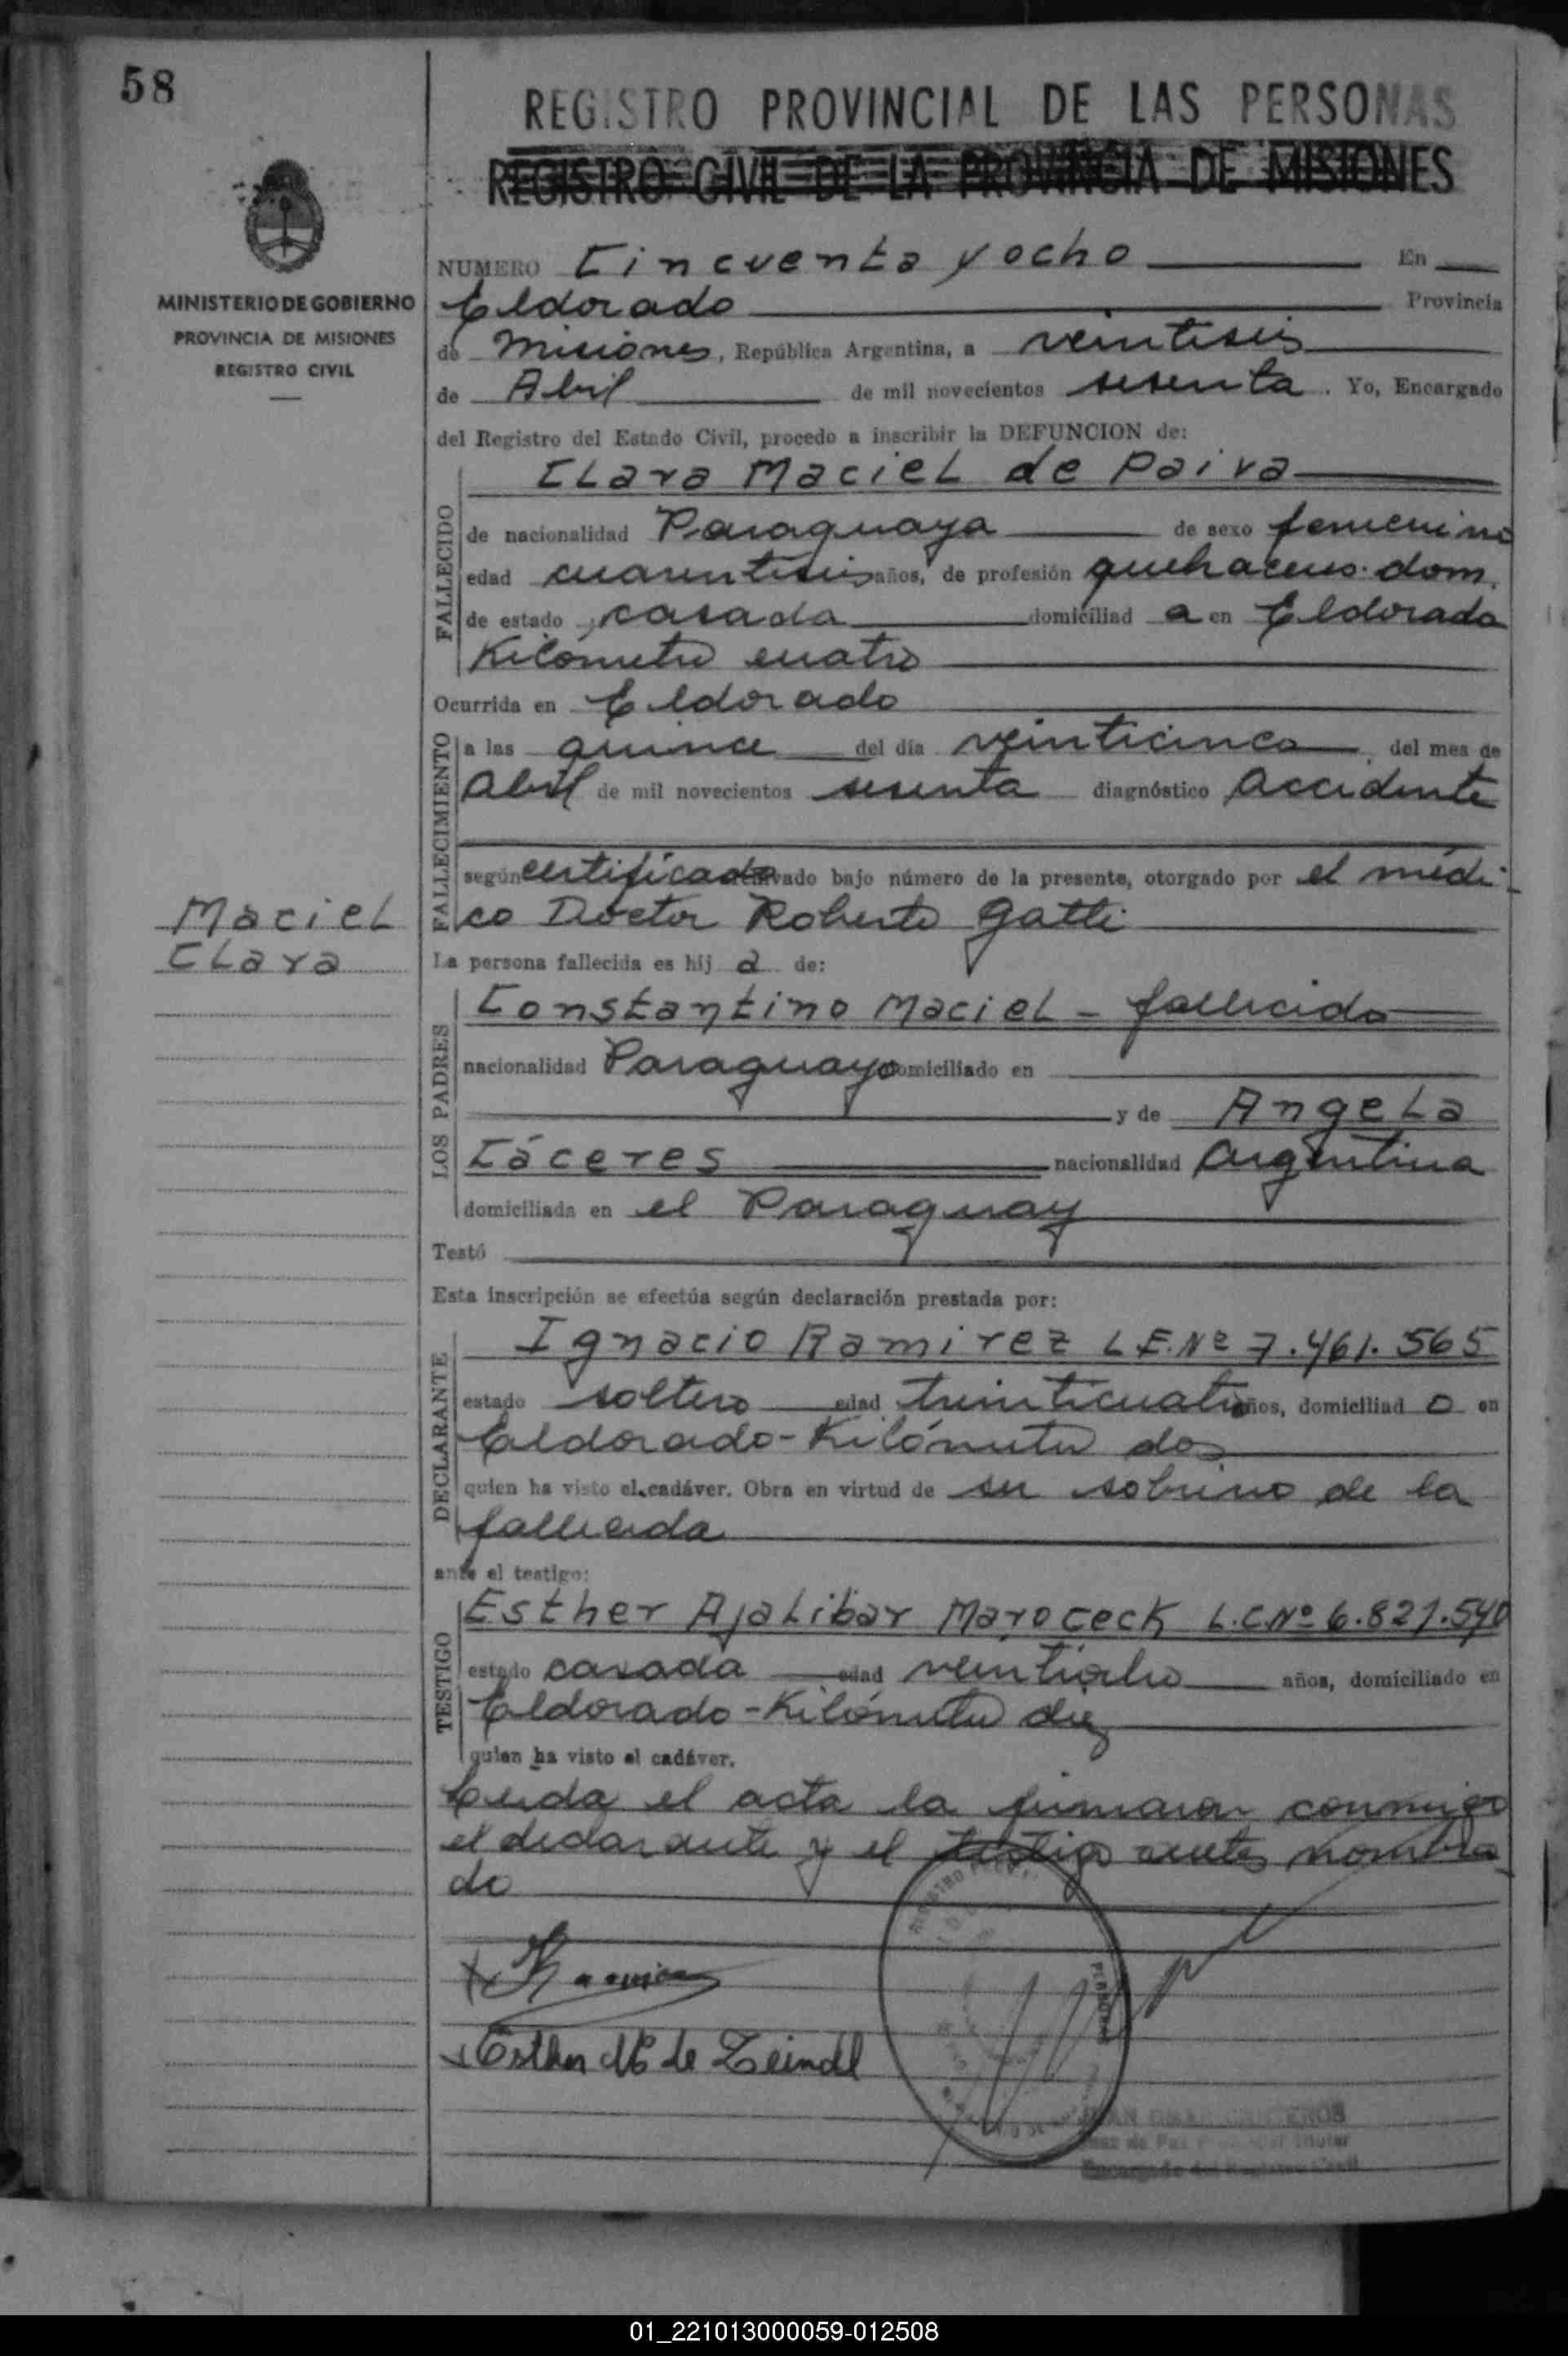 58
REGISTRO PROVINCIAL DE LAS PERSONAS
REGISTRO CIVIL DE LA PROVINCIA DE MISIONES
MINISTERIO DE GOBIERNO
PROVINCIA DE MISIONES
REGISTRO CIVIL
NUMERO Cincuenta y ocho En
Eldorado Provincia
de Misiones, República Argentina, a veintiseis
de Abril de mil novecientos sesenta. Yo, Encargado
del Registro del Estado Civil, procedo a inscribir la DEFUNCION de:
FALLECIDO
Clara Maciel de Paiva
de nacionalidad Paraguaya de sexo femenino
edad cuarentiseis años, de profesión quehaceres dom.
de estado casada domiciliad a en Eldorado
Kilómetro cuatro
Ocurrida en Eldorado
FALLECIMIENTO
a las quince del día veinticinco, del mes de
Abril de mil novecientos sesenta diagnóstico accidente
según certificado archivado bajo número de la presente, otorgado por el médi-
co Doctor Roberto Gatti
Maciel
Clara
La persona fallecida es hij a de:
LOS PADRES
Constantino Maciel - fallecido
nacionalidad Paraguayo domiciliado en
y de Angela
Cáceres nacionalidad Argentina
domiciliada en el Paraguay
Testó
Esta inscripción se efectúa según declaración prestada por:
DECLARANTE
Ignacio Ramirez L.E.Nº 7.461.565
estado soltero edad treinticuatro años, domiciliad o en
Eldorado-Kilómetro dos
quien ha visto el cadáver. Obra en virtud de ser sobrino de la
fallecida
ante el testigo:
TESTIGO
Esther Ajalibar Maroceck L.C.Nº 6.821.540
estado casada edad veintiocho años, domiciliado en
Eldorado-Kilómetro diez
quien ha visto el cadáver.
Leida el acta la firmaron conmigo
el declarante y el testigo antes nombra
do
Esther M. de Zeindl
PERSONAS
01_221013000059-012508